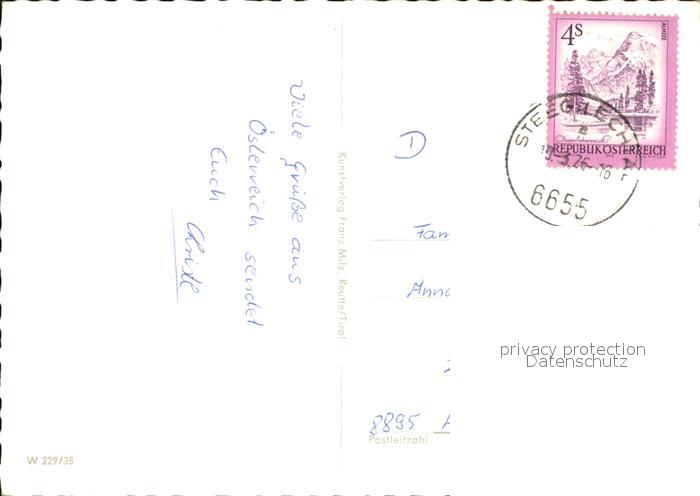 Viele Grüße aus
Österreich sendet
Euch
Christl
Kunstverlag Franz Milz, Reutte/Tirol
W 229/35
4S
ALMSEE
REPUBLIK ÖSTERREICH
STEEG, LECH
a
6655
D
Fam
Anna
8895 A
Postleitzahl
privacy protection
Datenschutz